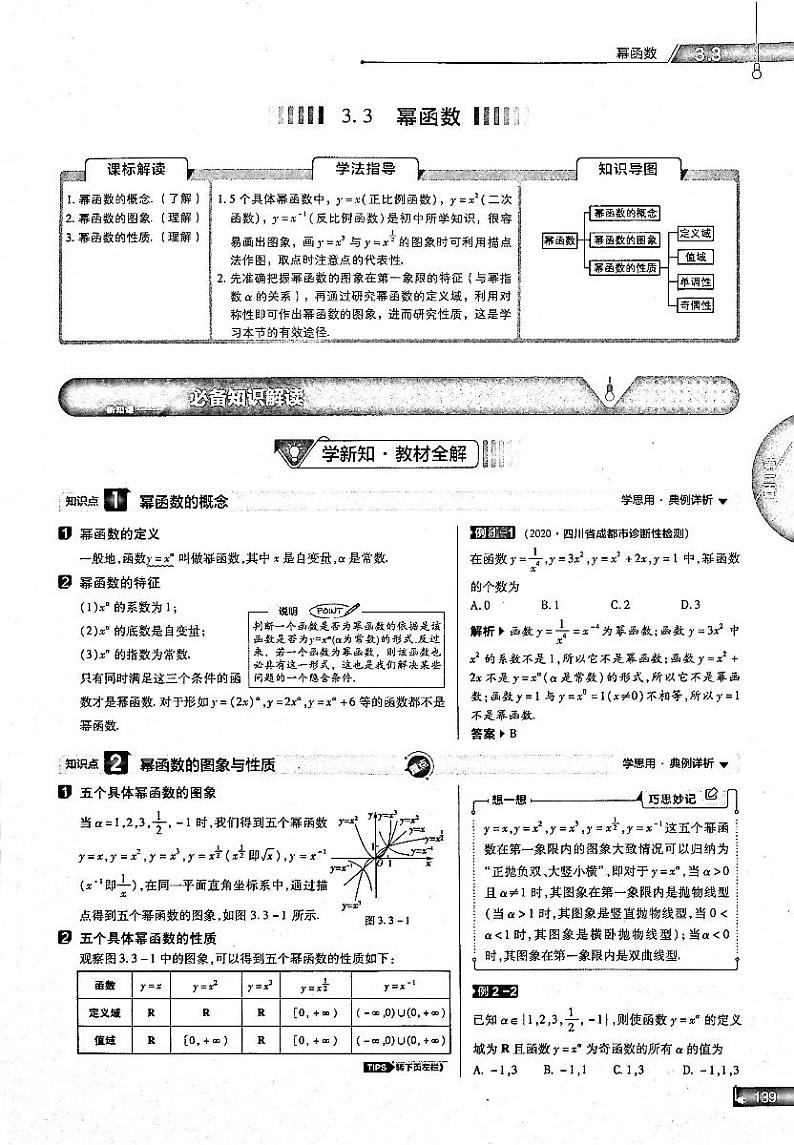 幂函数 3.3
3.3 幂函数
课标解读
1. 幂函数的概念.(了解)
2. 幂函数的图象.(理解)
3. 幂函数的性质.(理解)
学法指导
1. 5个具体幂函数中，y=x(正比例函数)，y=x²(二次
函数)，y=x⁻¹(反比例函数)是初中所学知识，很容
易画出图象，画y=x³与y=x^{1/2}的图象时可利用描点
法作图，取点时注意点的代表性.
2. 先准确把握幂函数的图象在第一象限的特征(与幂指
数α的关系)，再通过研究幂函数的定义域，利用对
称性即可作出幂函数的图象，进而研究性质，这是学
习本节的有效途径.
知识导图
幂函数
幂函数的概念
幂函数的图象
幂函数的性质
定义域
值域
单调性
奇偶性
必备知识解读
学新知·教材全解
知识点 1 幂函数的概念
学思用·典例详析
1 幂函数的定义
一般地,函数y=x^α叫做幂函数,其中x是自变量,α是常数.
2 幂函数的特征
(1)x^α的系数为1;
(2)x^α的底数是自变量;
(3)x^α的指数为常数.
只有同时满足这三个条件的函
数才是幂函数.对于形如y=(2x)^α,y=2x^α,y=x^α+6等的函数都不是
幂函数.
说明 POINT
判断一个函数是否为幂函数的依据是该
函数是否为y=x^α(α为常数)的形式.反过
来，若一个函数为幂函数，则该函数也
必具有这一形式，这也是我们解决某些
问题的一个隐含条件.
例1-1 (2020·四川省成都市诊断性检测)
在函数y=1/x⁴,y=3x²,y=x²+2x,y=1中,幂函数
的个数为
A.0 B.1 C.2 D.3
解析 函数y=1/x⁴=x⁻⁴为幂函数;函数y=3x²中
x²的系数不是1,所以它不是幂函数;函数y=x²+
2x不是y=x^α(α是常数)的形式,所以它不是幂函
数;函数y=1与y=x⁰=1(x≠0)不相等,所以y=1
不是幂函数.
答案 B
知识点 2 幂函数的图象与性质
重点
学思用·典例详析
1 五个具体幂函数的图象
当α=1,2,3,1/2,-1时,我们得到五个幂函数
y=x,y=x²,y=x³,y=x^{1/2}(x^{1/2}即√x),y=x⁻¹
(x⁻¹即1/x),在同一平面直角坐标系中,通过描
点得到五个幂函数的图象,如图3.3-1所示.
y=x² y y=x³
y=x²
y=x
y=x^{1/2}
1
y=x⁻¹
O 1 x
y=x⁻¹
y=x
y=x³
图3.3-1
2 五个具体幂函数的性质
观察图3.3-1中的图象,可以得到五个幂函数的性质如下:
函数 y=x y=x² y=x³ y=x^{1/2} y=x⁻¹
定义域 R R R [0,+∞) (-∞,0)∪(0,+∞)
值域 R [0,+∞) R [0,+∞) (-∞,0)∪(0,+∞)
TIPS 转下页左栏)
想一想 巧思妙记
y=x,y=x²,y=x³,y=x^{1/2},y=x⁻¹这五个幂函
数在第一象限内的图象大致情况可以归纳为
“正抛负双、大竖小横”,即对于y=x^α,当α>0
且α≠1时,其图象在第一象限内是抛物线型
(当α>1时,其图象是竖直抛物线型,当0<
α<1时,其图象是横卧抛物线型);当α<0
时,其图象在第一象限内是双曲线型.
例2-2
已知α∈{1,2,3,1/2,-1},则使函数y=x^α的定义
域为R且函数y=x^α为奇函数的所有α的值为
A. -1,3 B. -1,1 C. 1,3 D. -1,1,3
139